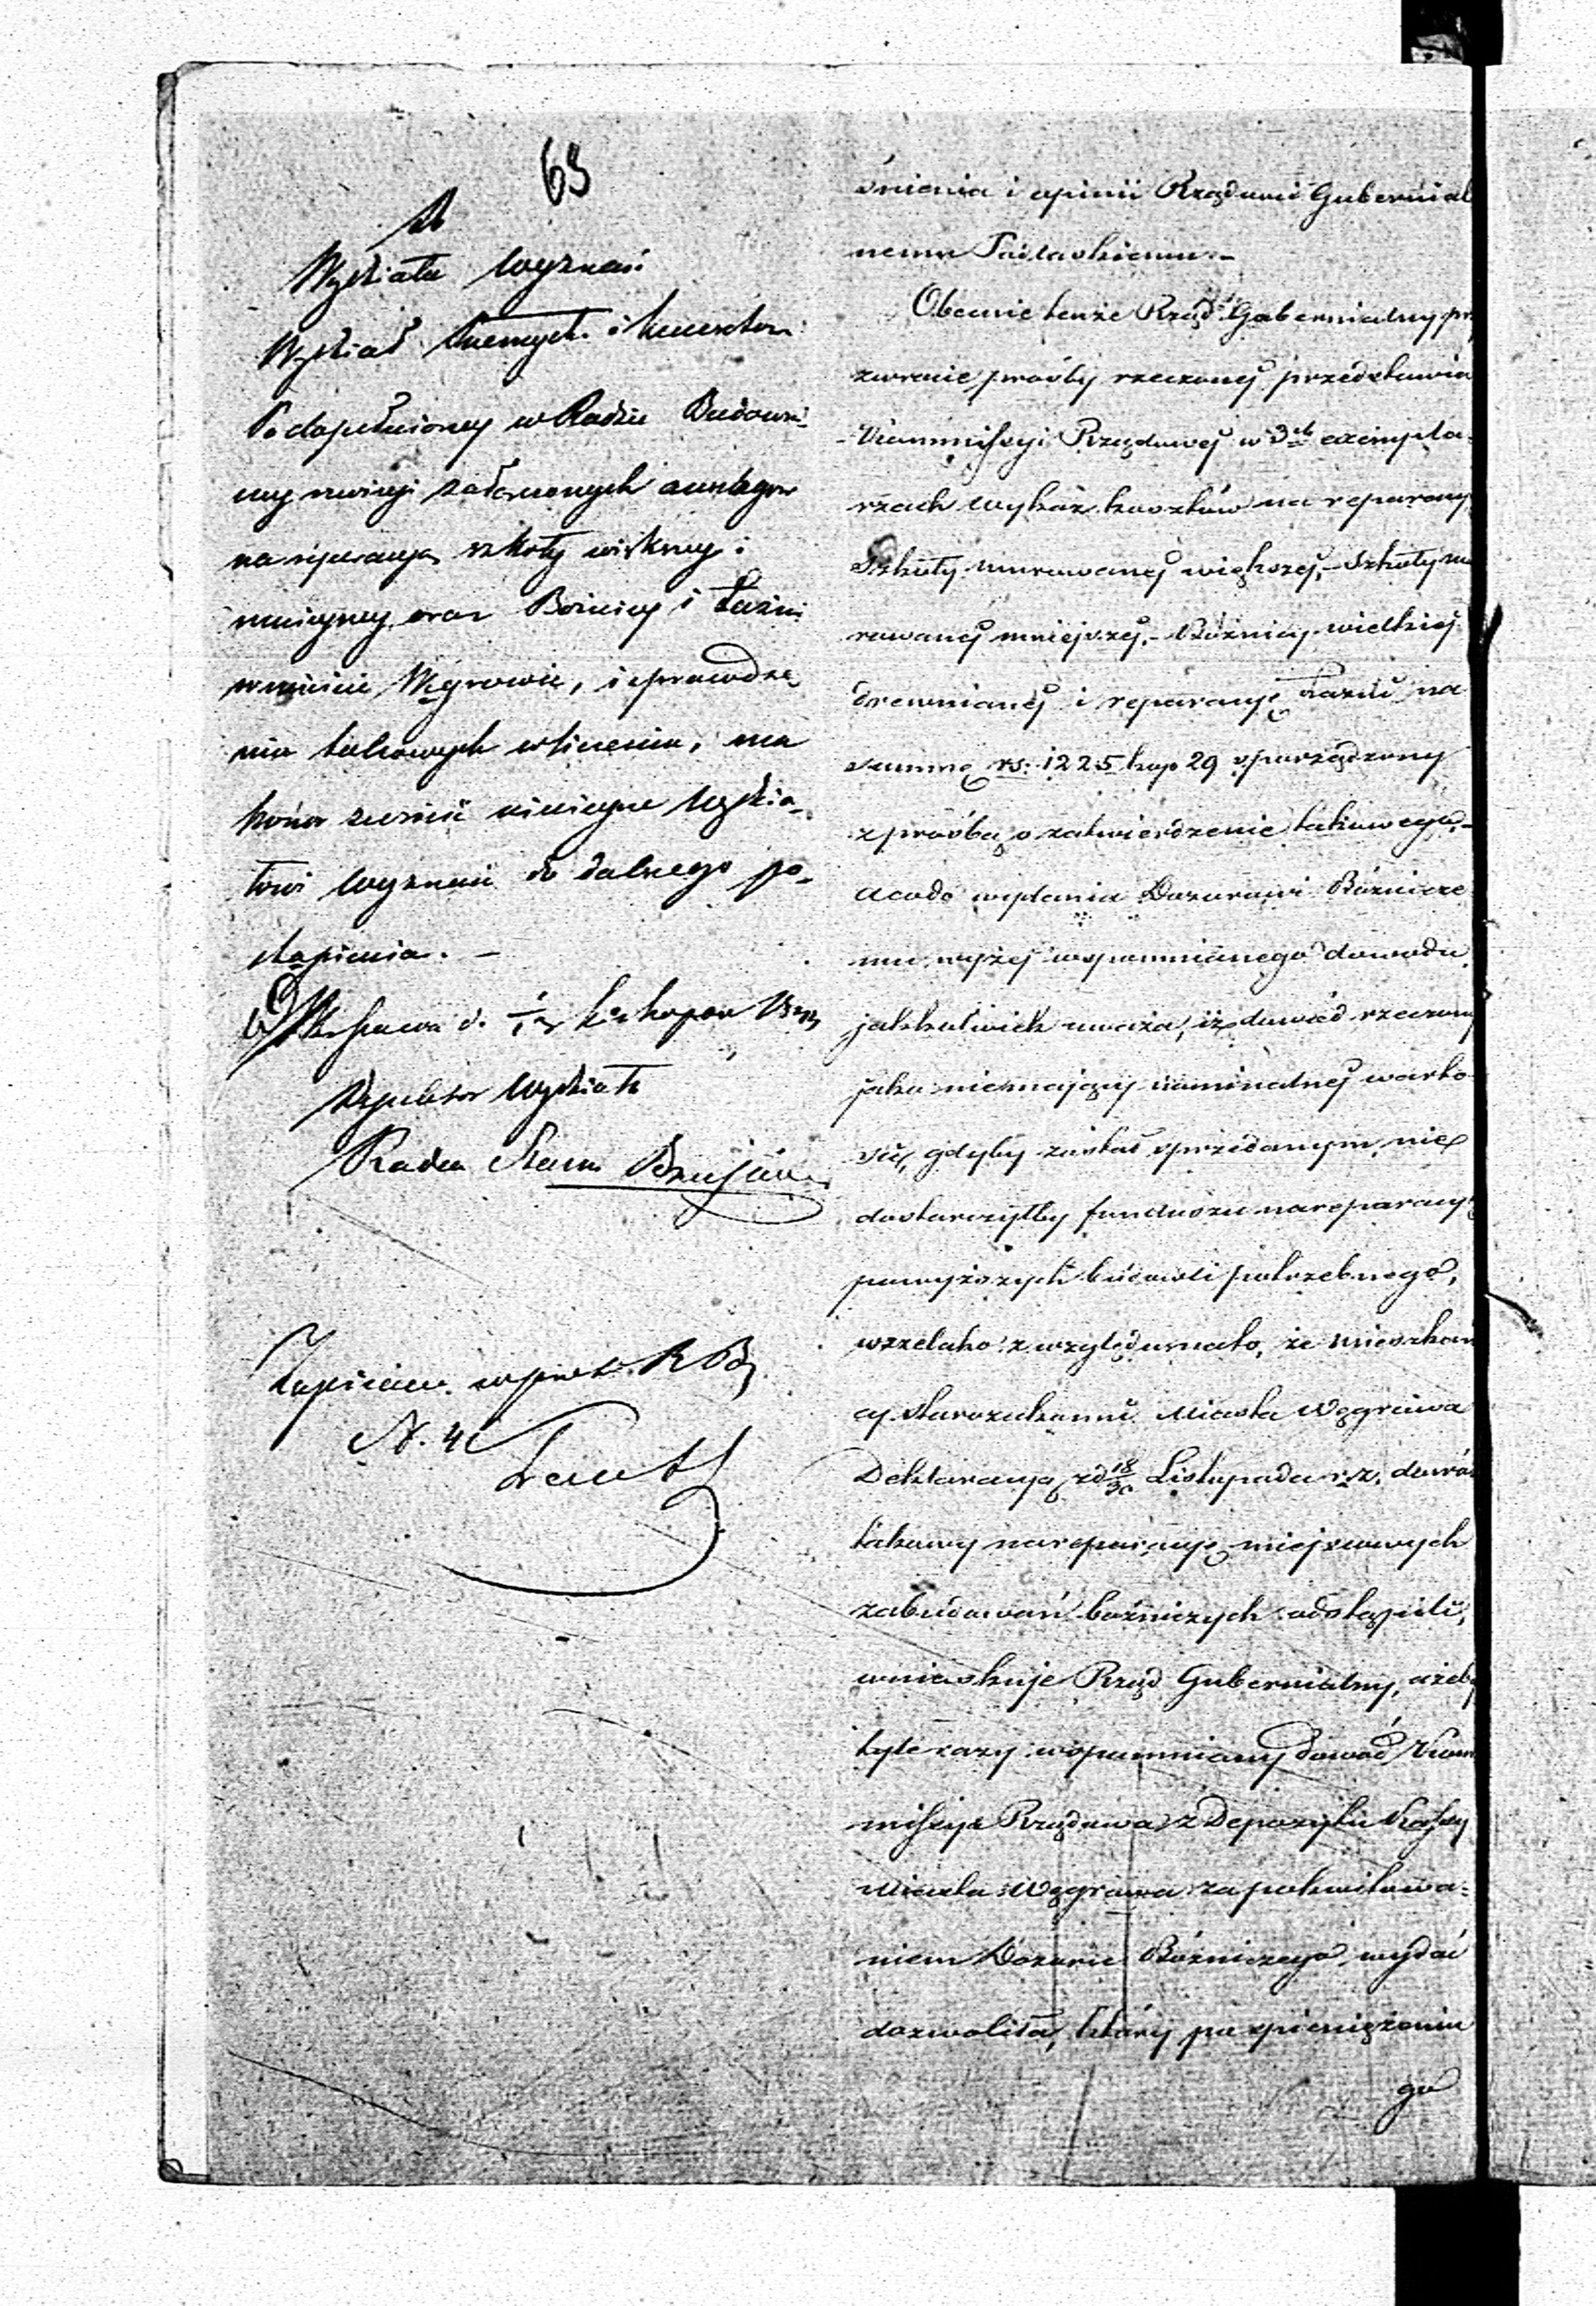 63
Do
Wydziału Wyznań
Wydział
Po dopełnionej w Radzie Budowni-
czej rewizji załączonych anszlagów
na reperacyą szkoły większey i
mnieyszey oraz Bożnicy i Łaźni
w mieście Węgrowie, i sprawdze-
niu takowych obliczenia, ma
honor zwrócić niniejsze Wydzia-
łowi Wyznań do dalszego po-
stąpienia. –
Warszawa d.
Dyrektor Wydziału
Radca Stanu
N. 41
śnienia i opinii Rządowi Gubernial
nemu Podlaskiemu. –
Obecnie tenże Rząd Gubernialny przy
zwrocie prośby rzeczonej przedstawia
Kommissyi Rządowej w 3ch exempla-
rzach wykaz kosztów na reparacyę
Szkoły murowanej większej, – Szkoły mu
rowanej mniejszej, – Bóżnicy wielkiej
drewnianej i reparacyę Łaźni na
summę rs: 1225 kop 29 sporządzony
z prośbą o zatwierdzenie takowego, –
a co do wydania Dozorowi Bóżnicze
mu wyżej wspomnianego dowodu
jakkolwiek uważa, iż dowód rzeczony
jako niemający nominalnej warto
ści, gdyby został sprzedanym, nie
dostarczyłby funduszu na reparacyę
powyższych budowli potrzebnego,
wszelako z względu na to, że mieszkań
cy starozakonni Miasta Węgrowa
Deklaracyą z d 18/30 Listopada r. z. dowód
takowy na reparacyę miejscowych
zabudowań bożniczych odstąpili,
wnioskuje Rząd Gubernialny, ażeby
tyle razy wspomniany dowód Kom
missya Rządowa z Depozytu Kassy
Miasta Węgrowa za pokwitowa=
niem Dozoru Bóżniczego wydać
dozwoliła, który po spieniężeniu
go